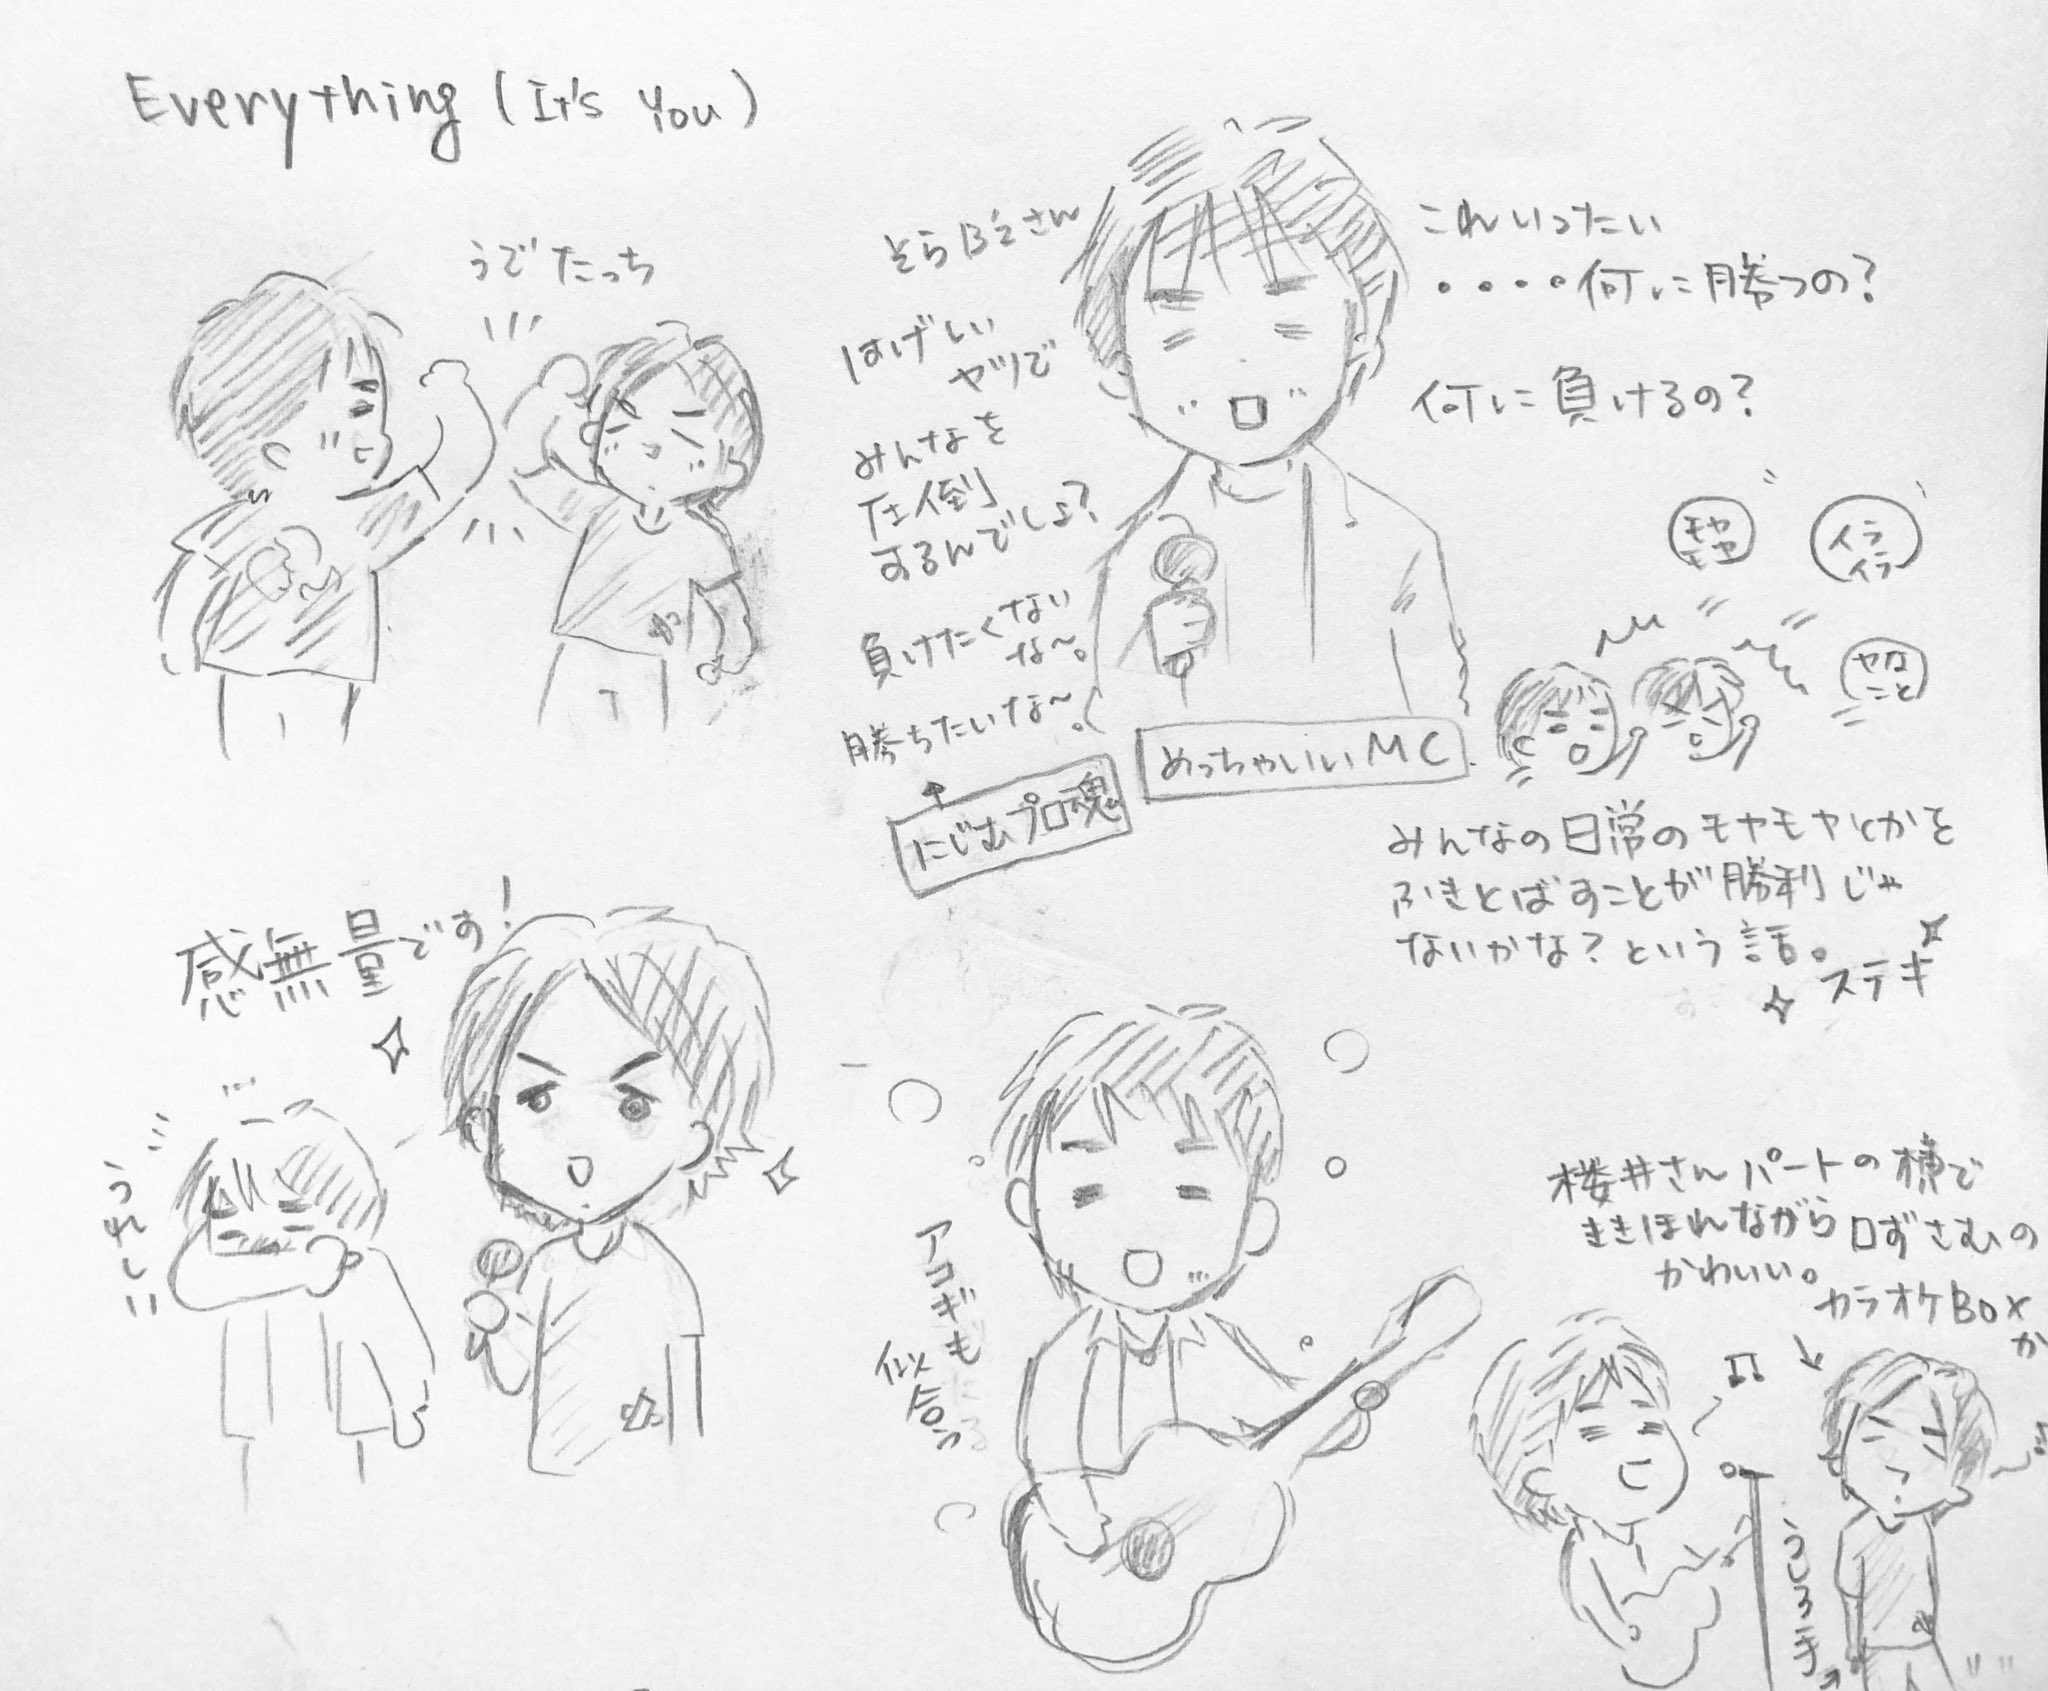 Everything (It's You)
うでたっち
そらB'zさん
はげしい
ヤツで
みんなを
圧倒
するんでしょ?
負けたくない
な〜。
勝ちたいな〜。
にじむプロ魂
めっちゃいいMC
これいったい
・・・・何に勝つの?
何に負けるの?
モヤ
モヤ
イラ
イラ
ヤなこと
みんなの日常のモヤモヤとかを
ふきとばすことが勝利じゃ
ないかな?という話。
ステキ
感無量です!
うれしい
アコギも
似合う
桜井さんパートの横で
ききほれながら口ずさむの
かわいい。
カラオケBOX
か
うしろ手